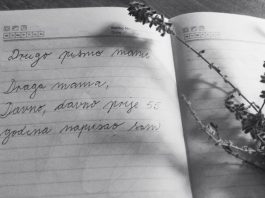 Drugo pismo mami
Draga mama,
Davno, davno prije 55
godina napisao sam